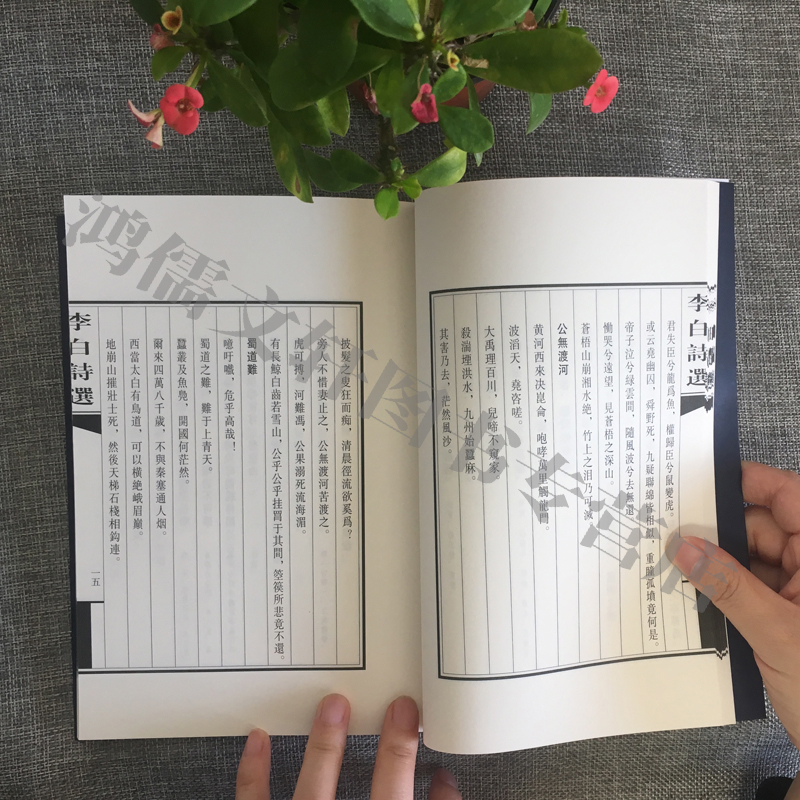 李白詩選
君失臣兮龍爲魚，權歸臣兮鼠變虎。
或云堯幽囚，舜野死，九疑聯綿皆相似，重瞳孤墳竟何是。
帝子泣兮綠雲間，隨風波兮去無還。
慟哭兮遠望，見蒼梧之深山。
蒼梧山崩湘水絶，竹上之淚乃可滅
公無渡河
黃河西來决崑侖，咆哮萬里觸龍門。
波滔天，堯咨嗟。
大禹理百川，兒啼不窺家。
殺湍堙洪水，九州始蠶麻。
其害乃去，茫然風沙。
披髮之叟狂而痴，清晨徑流欲奚爲？
旁人不惜妻止之，公無渡河苦渡之。
虎可搏，河難馮，公果溺死流海湄。
有長鯨白齒若雪山，公乎公乎挂罥于其間，箜篌所悲竟不還。
蜀道難
噫吁嚱，危乎高哉！
蜀道之難，難于上青天。
蠶叢及魚鳧，開國何茫然。
爾來四萬八千歲，不與秦塞通人烟。
西當太白有鳥道，可以横絶峨眉巔。
地崩山摧壯士死，然後天梯石棧相鈎連。
李白詩選
一五
鸿儒文轩图书专营店